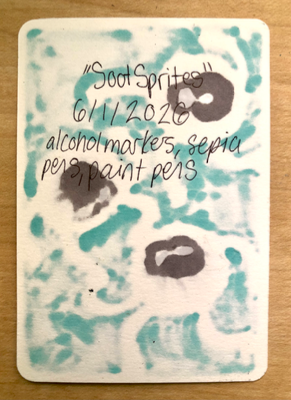 "Soot Sprites"
6/1/2026
alcohol markers, sepia
pens, paint pens